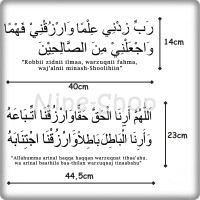 رَبِّ زِدْنِي عِلْمًا وَارْزُقْنِي فَهْمًا
وَاجْعَلْنِيْ مِنَ الصَّالِحِيْنَ
14cm
"Robbii zidnii ilmaa, warzuqnii fahma,
waj'alnii minash-Shoolihiin"
40cm
Nine-Shop
اَللّٰهُمَّ أَرِنَا الْحَقَّ حَقًّا وَارْزُقْنَا اتِّبَاعَهُ
وَأَرِنَا الْبَاطِلَ بَاطِلًا وَارْزُقْنَا اجْتِنَابَهُ
23cm
"Allahumma arinal haqqa haqqan warzuqnat tibaa'ahu.
wa arinal baathila baa-thilan warzuqnaj tinaabahu"
44,5cm